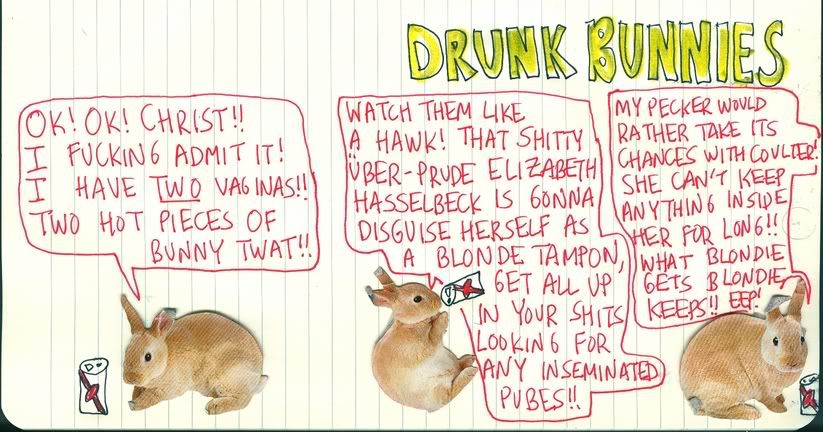 DRUNK BUNNIES
OK! OK! CHRIST!!
I FUCKING ADMIT IT!
I HAVE TWO VAGINAS!!
TWO HOT PIECES OF
BUNNY TWAT!!
WATCH THEM LIKE
A HAWK! THAT SHITTY
ÜBER-PRUDE ELIZABETH
HASSELBECK IS GONNA
DISGUISE HERSELF AS
A BLONDE TAMPON,
GET ALL UP
IN YOUR SHITS
LOOKING FOR
ANY INSEMINATED
PUBES!!
MY PECKER WOULD
RATHER TAKE ITS
CHANCES WITH COULTER!
SHE CAN'T KEEP
ANYTHING INSIDE
HER FOR LONG!!
WHAT BLONDIE
GETS BLONDIE
KEEPS!! EEP!